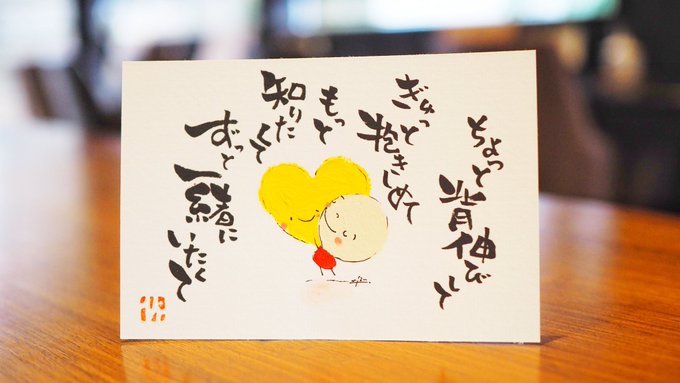 ちょっと
背伸びして
ぎゅっと
抱きしめて
もっと
知りたくて
ずっと
一緒に
いたくて